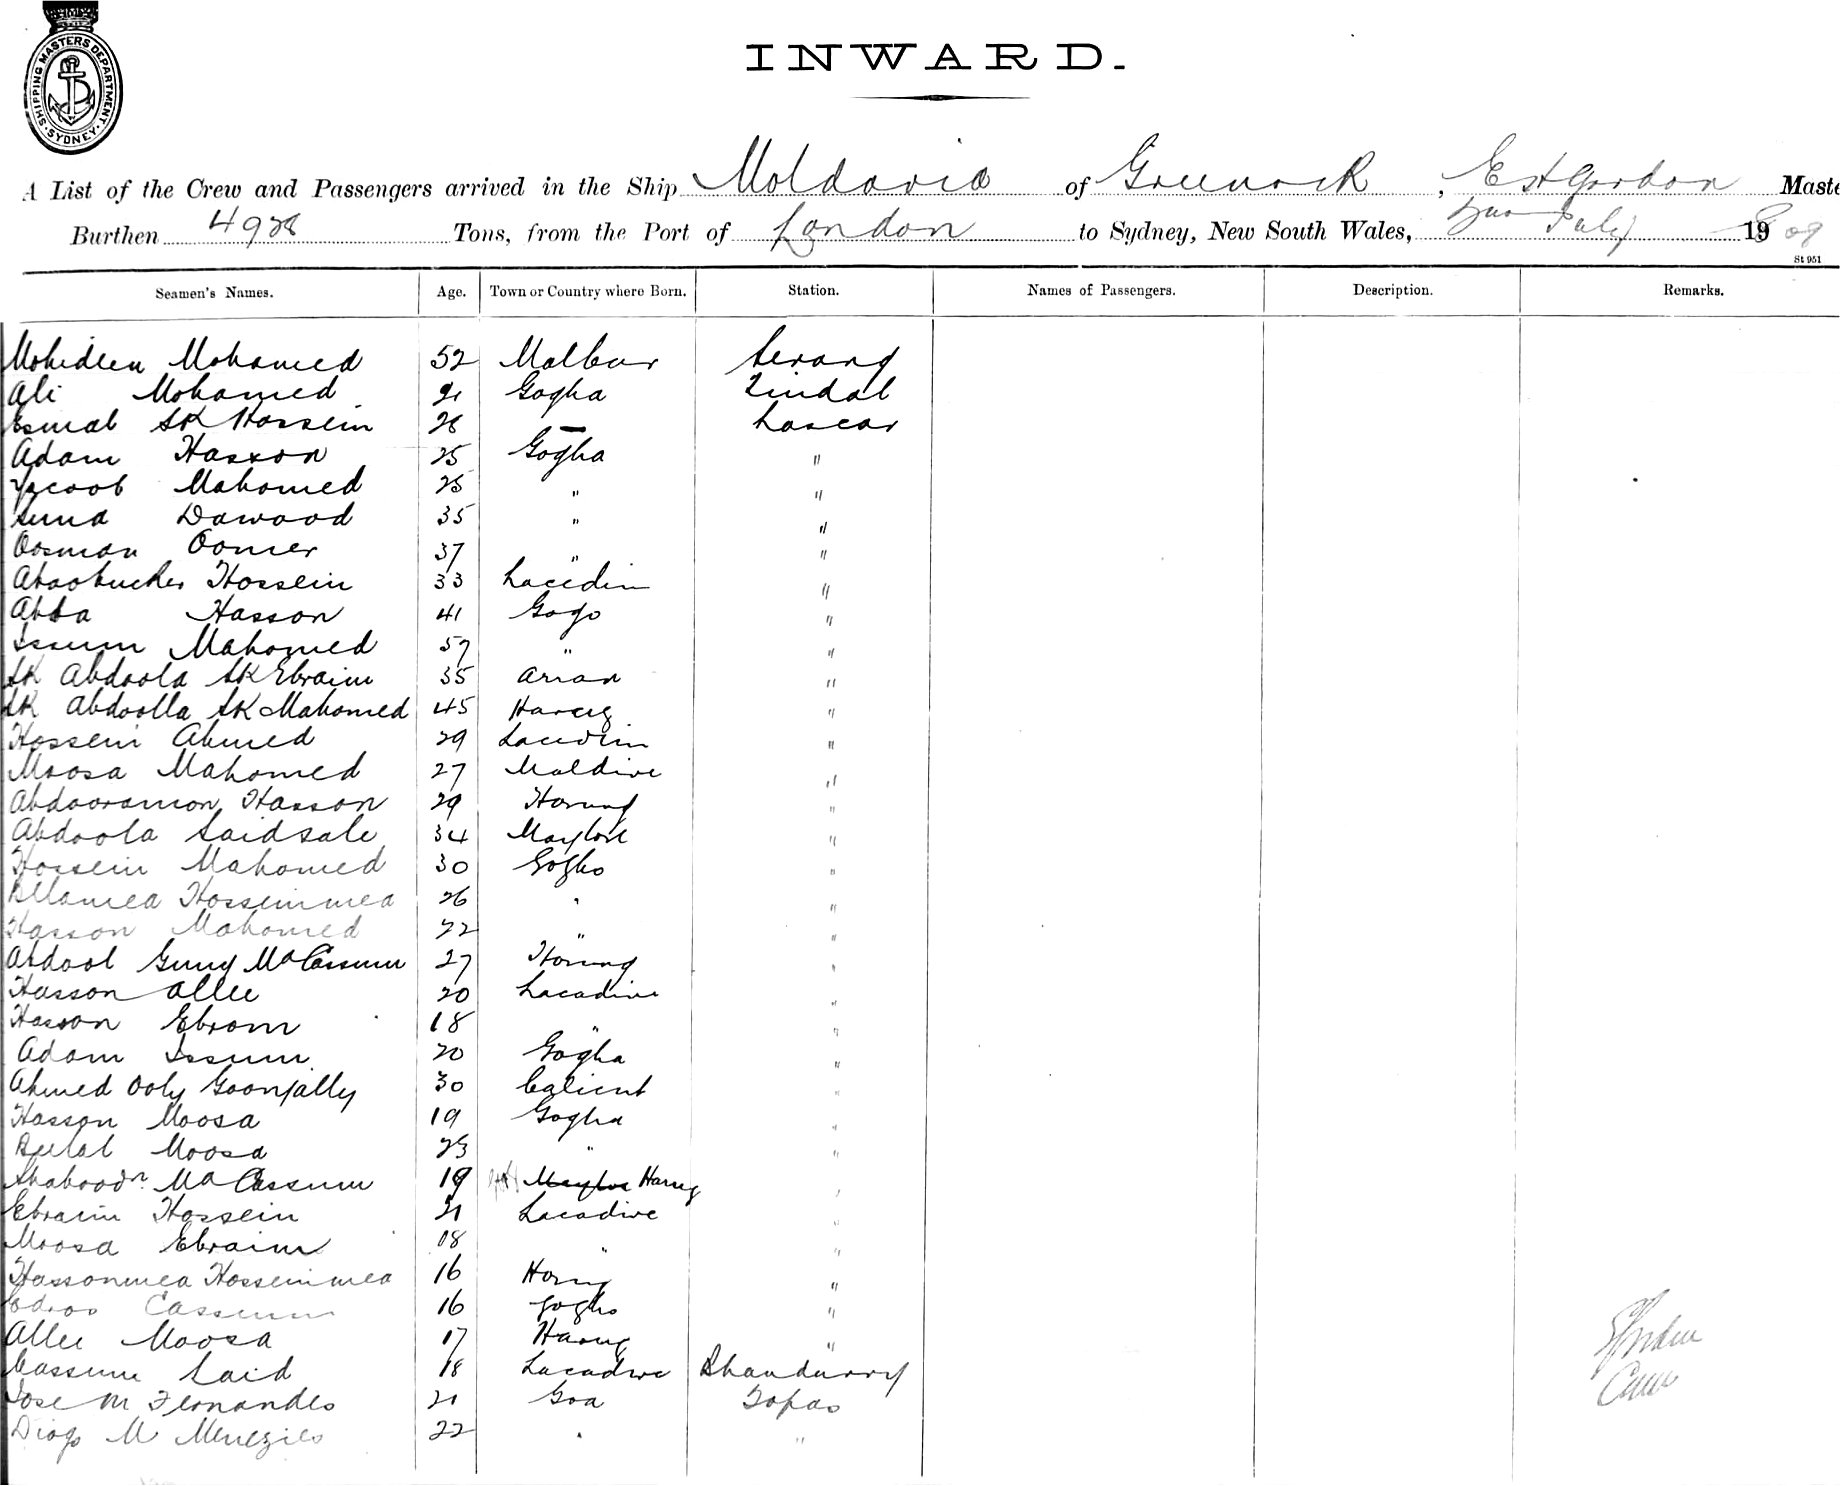 SHIPPING MASTERS DEPARTMENT · SYDNEY ·
INWARD.
A List of the Crew and Passengers arrived in the Ship Moldavia of Greenock, E H Gordon Maste
Burthen 4928 Tons, from the Port of London to Sydney, New South Wales, July 1908
St 951
Seamen's Names. Age. Town or Country where Born. Station. Names of Passengers. Description. Remarks.
Mohideen Mohamed 52 Malbar Serang
Ali Mohamed 21 Gogha Tindal
Esmal SK Hossein 28 — Lascar
Adam Hasson 25 Gogha "
Yacoob Mahomed 25 " "
Dawood 35 " "
Oosman Oomer 37 " "
Aboobucker Hossein 33 Lacedin "
Abba Hasson 41 Gogo "
Issum Mahomed 57 " "
SK Abdoola SK Ebraim 35 "
SK Abdoolla SK Mahomed 45 "
Hossein Ahmed 29 Lacedin "
Moosa Mahomed 27 Maldive "
Abdooramon Hasson 29 "
Abdoola Saidsale 34 "
Hossein Mahomed 30 Gogho "
Hosseinmea 26 " "
Hasson Mahomed 22 " "
Abdool Guny Md Cassum 27 "
Hasson Allee 20 Lacadive "
Hasson Ebrom 18 " "
Adam Issum 20 Gogha "
Ahmed Ooly Goonjally 30 Calicut "
Hasson Moosa 19 Gogha "
Belal Moosa 23 " "
Shaboodn Md Cassum 19 "
Ebraim Hossein 21 Lacadive "
Moosa Ebraim 18 " "
Hassonmea Hosseinmea 16 "
Edroo Cassum 16 Gogho "
Allee Moosa 17 "
Cassum Said 18 Lacadive Bhandarry
Jose M Fernandes 21 Goa Topas
Diogo M Menezies 22 " "